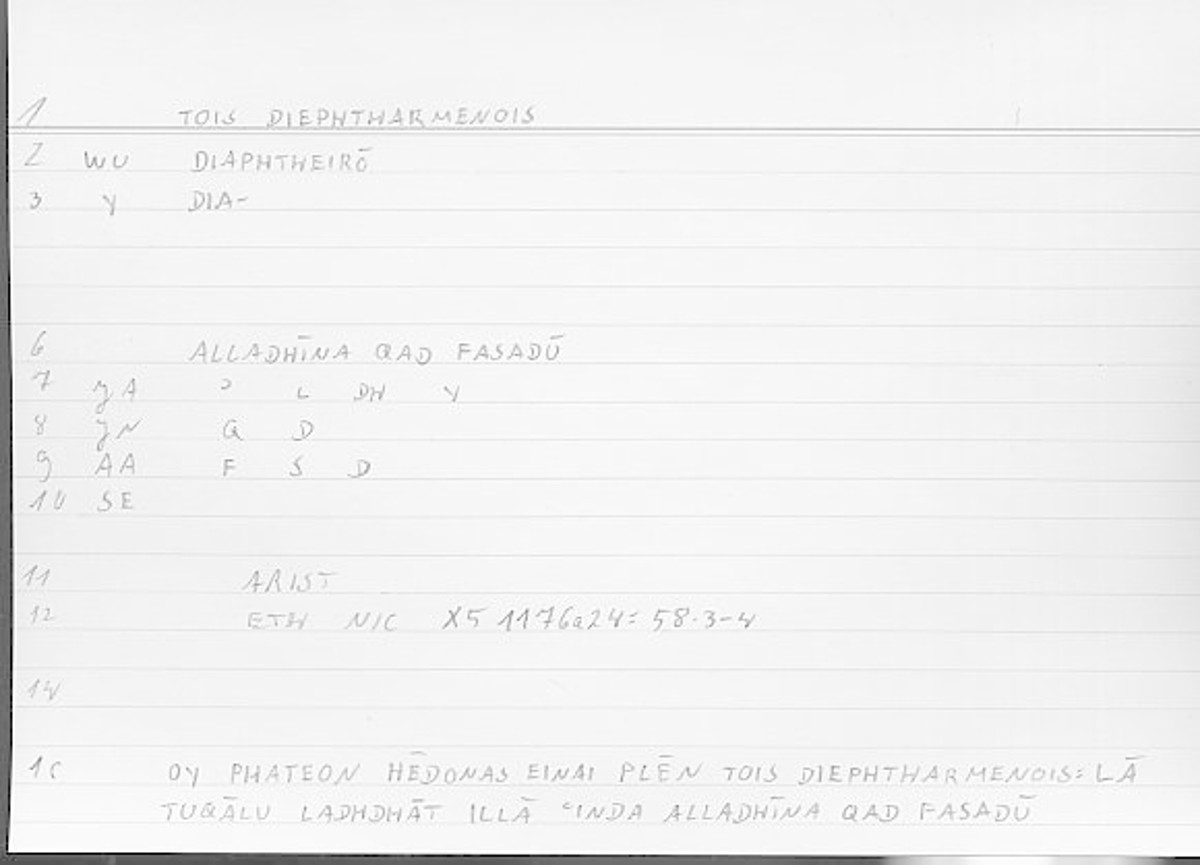 1 TOIS DIEPHTHARMENOIS
2 WU DIAPHTHEIRŌ
3 Y DIA-
6 ALLADHĪNA QAD FASADŪ
7 ZA ʾ L DH Y
8 ZN Q D
9 AA F S D
10 SE
11 ARIST
12 ETH NIC X5 1176a24: 58.3-4
14
15 OY PHATEON HĒDONAS EINAI PLĒN TOIS DIEPHTHARMENOIS: LĀ
TUQĀLU LADHDHĀT ILLĀ ʿINDA ALLADHĪNA QAD FASADŪ